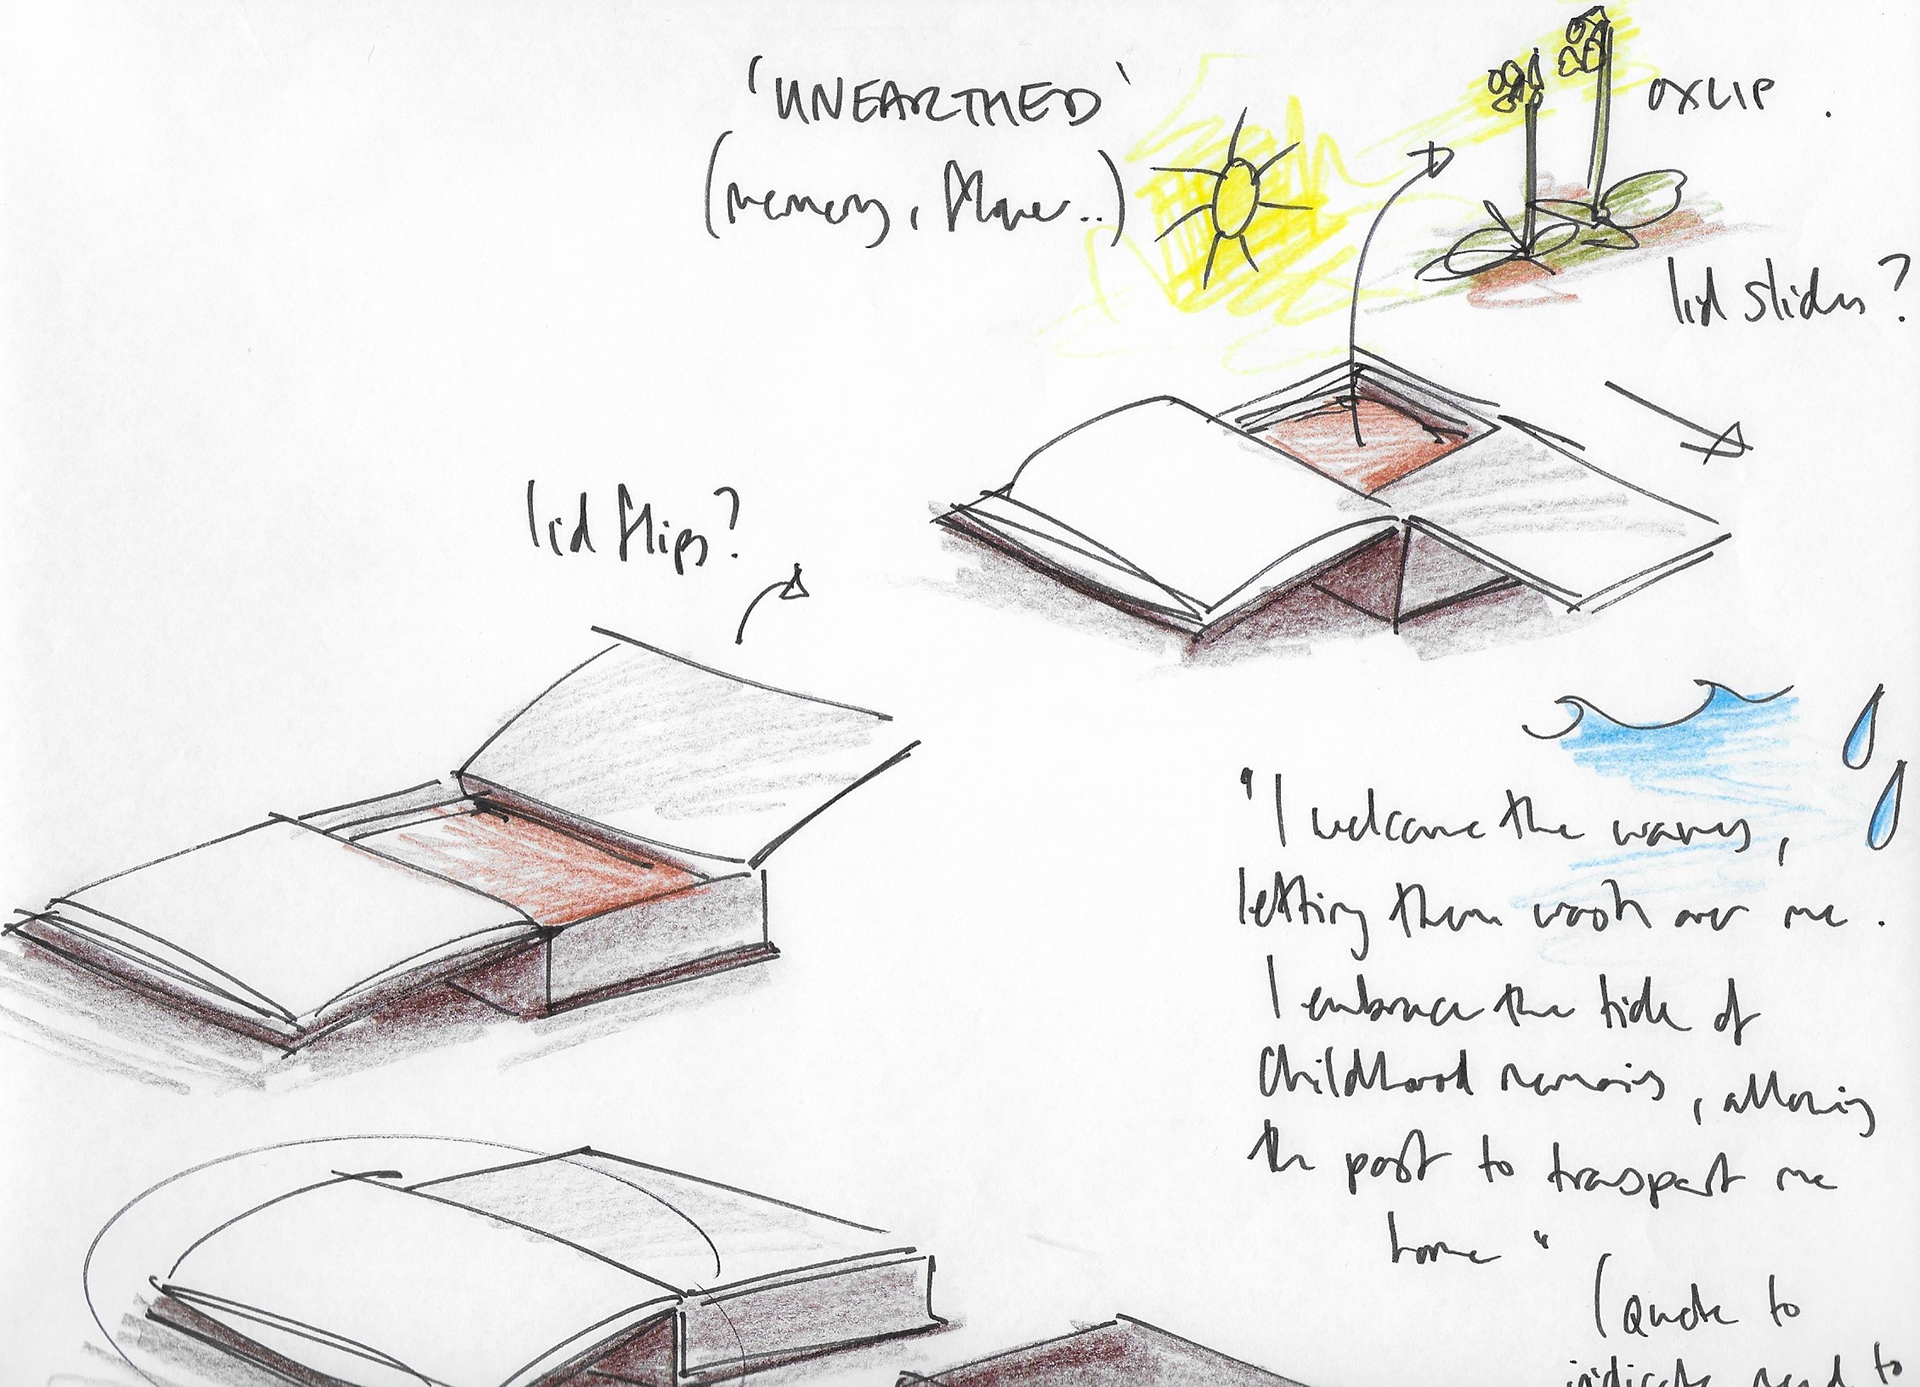 'UNEARTHED'
(memory, flower..)
OXLIP.
lid slides?
lid flips?
"I welcome the waves,
letting them wash over me.
I embrace the tide of
childhood memories, allowing
the past to transport me
home"
(Quote to
indicate need to